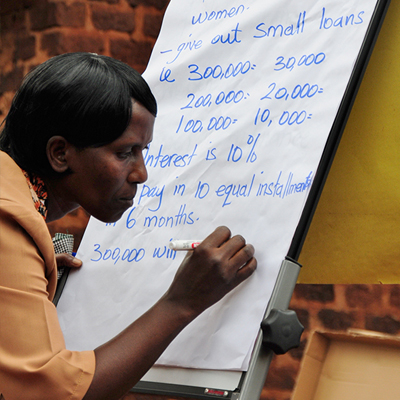 women.
- give out small loans
ie 300,000= 30,000
200,000= 20,000=
100,000= 10,000=
Interest is 10%
pay in 10 equal installments
in 6 months.
300,000 will